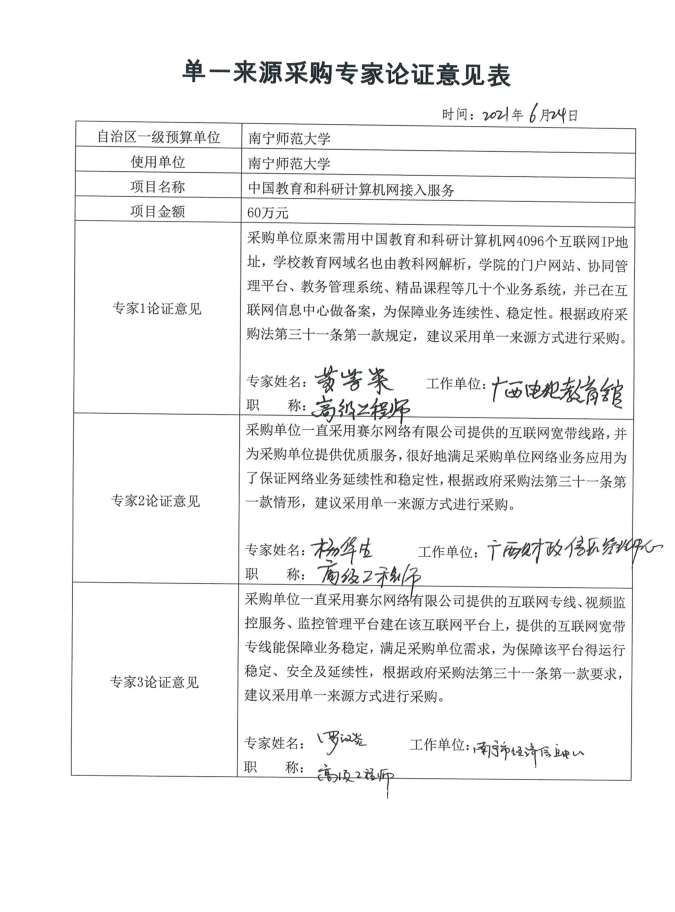 单一来源采购专家论证意见表
时间：2021年6月24日
自治区一级预算单位 南宁师范大学
使用单位 南宁师范大学
项目名称 中国教育和科研计算机网接入服务
项目金额 60万元
专家1论证意见
采购单位原来需用中国教育和科研计算机网4096个互联网IP地
址，学校教育网域名也由教科网解析，学院的门户网站、协同管
理平台、教务管理系统、精品课程等几十个业务系统，并已在互
联网信息中心做备案，为保障业务连续性、稳定性。根据政府采
购法第三十一条第一款规定，建议采用单一来源方式进行采购。
专家姓名： 工作单位：广西电化教育馆
职 称：高级工程师
专家2论证意见
采购单位一直采用赛尔网络有限公司提供的互联网宽带线路，并
为采购单位提供优质服务，很好地满足采购单位网络业务应用为
了保证网络业务延续性和稳定性，根据政府采购法第三十一条第
一款情形，建议采用单一来源方式进行采购。
专家姓名：杨华生 工作单位：广西财政信息管理中心
职 称：高级工程师
专家3论证意见
采购单位一直采用赛尔网络有限公司提供的互联网专线、视频监
控服务、监控管理平台建在该互联网平台上，提供的互联网宽带
专线能保障业务稳定，满足采购单位需求，为保障该平台得运行
稳定、安全及延续性，根据政府采购法第三十一条第一款要求，
建议采用单一来源方式进行采购。
专家姓名： 工作单位：南宁市经济信息中心
职 称：高级工程师